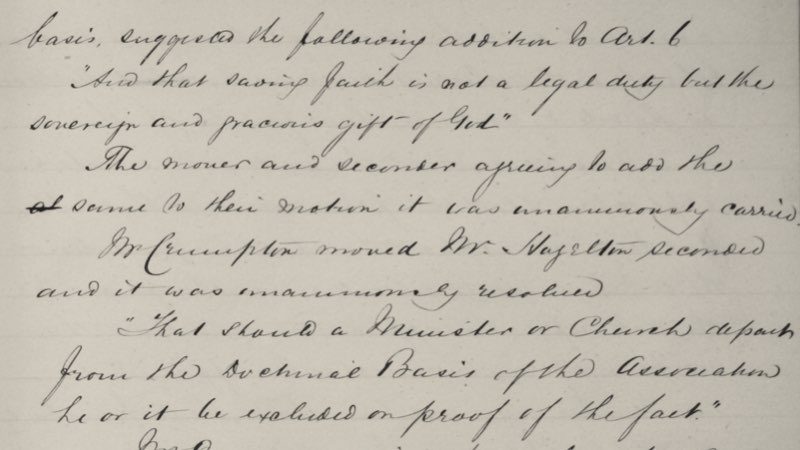 basis, suggested the following addition to Art. 6
"And that saving faith is not a legal duty but the
sovereign and gracious gift of God"
The mover and seconder agreeing to add the
same to their motion it was unanimously carried.
Mr Crumpton moved Mr. Hazelton seconded
and it was unanimously resolved
"That should a Minister or Church depart
from the Doctrinal Basis of the Association
he or it be excluded on proof of the fact."